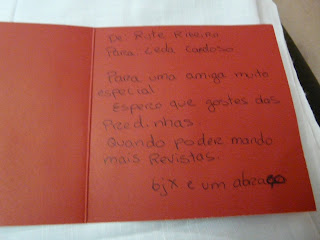 De Rute Ribeiro
Para Leda Cardoso
Para uma amiga muito
especial
Espero que gostes das
Predinhas
Quando poder mando
mais Revistas.
bjx e um abraço